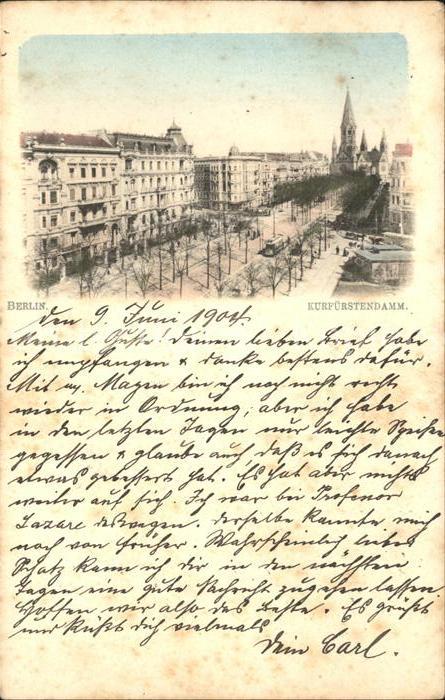 BERLIN.
KURFÜRSTENDAMM.
den 9. Juni 1904
Meine l. Guste! Deinen lieben Brief habe
ich empfangen & danke bestens dafür.
Mit m. Magen bin ich noch nicht recht
wieder in Ordnung, aber ich habe
in den letzten Tagen nur leichte Speisen
gegessen & glaube auch daß es sich danach
etwas gebessert hat. Es hat aber nichts
weiter auf sich. Ich war bei Professor
Lazare deswegen. derselbe kannte mich
noch von früher. Wahrscheinlich lieber
Schatz kann ich dir in den nächsten
Tagen eine gute Nachricht zugehen lassen.
Hoffen wir also das Beste. Es grüßt
und küßt dich vielmals
Dein Carl.